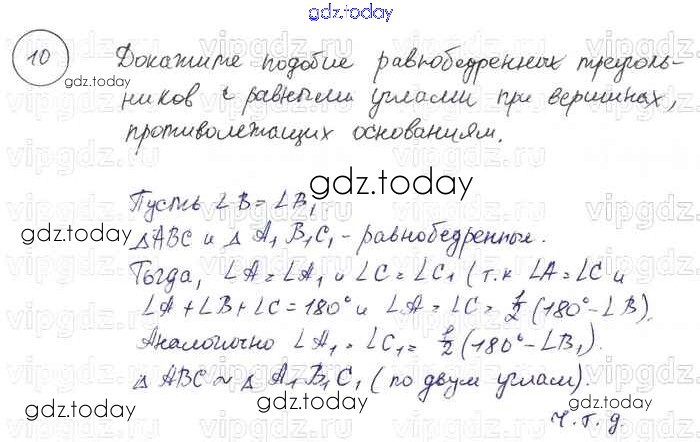 gdz.today
10
Докажите подобие равнобедренных треуголь-
ников с равными углами при вершинах,
противолежащих основаниям.
gdz.today
Пусть ∠B = ∠B₁
gdz.today
△ABC и △ A₁B₁C₁ - равнобедренные.
gdz.today
Тогда, ∠A = ∠A₁ и ∠C = ∠C₁ (т.к ∠A = ∠C и
∠A + ∠B + ∠C = 180° и ∠A = ∠C = 1/2 (180° - ∠B).
Аналогично ∠A₁ = ∠C₁ = 1/2 (180° - ∠B₁).
△ ABC ~ △ A₁B₁C₁ (по двум углам).
gdz.today
gdz.today
ч.т.д.
vipgdz.ru